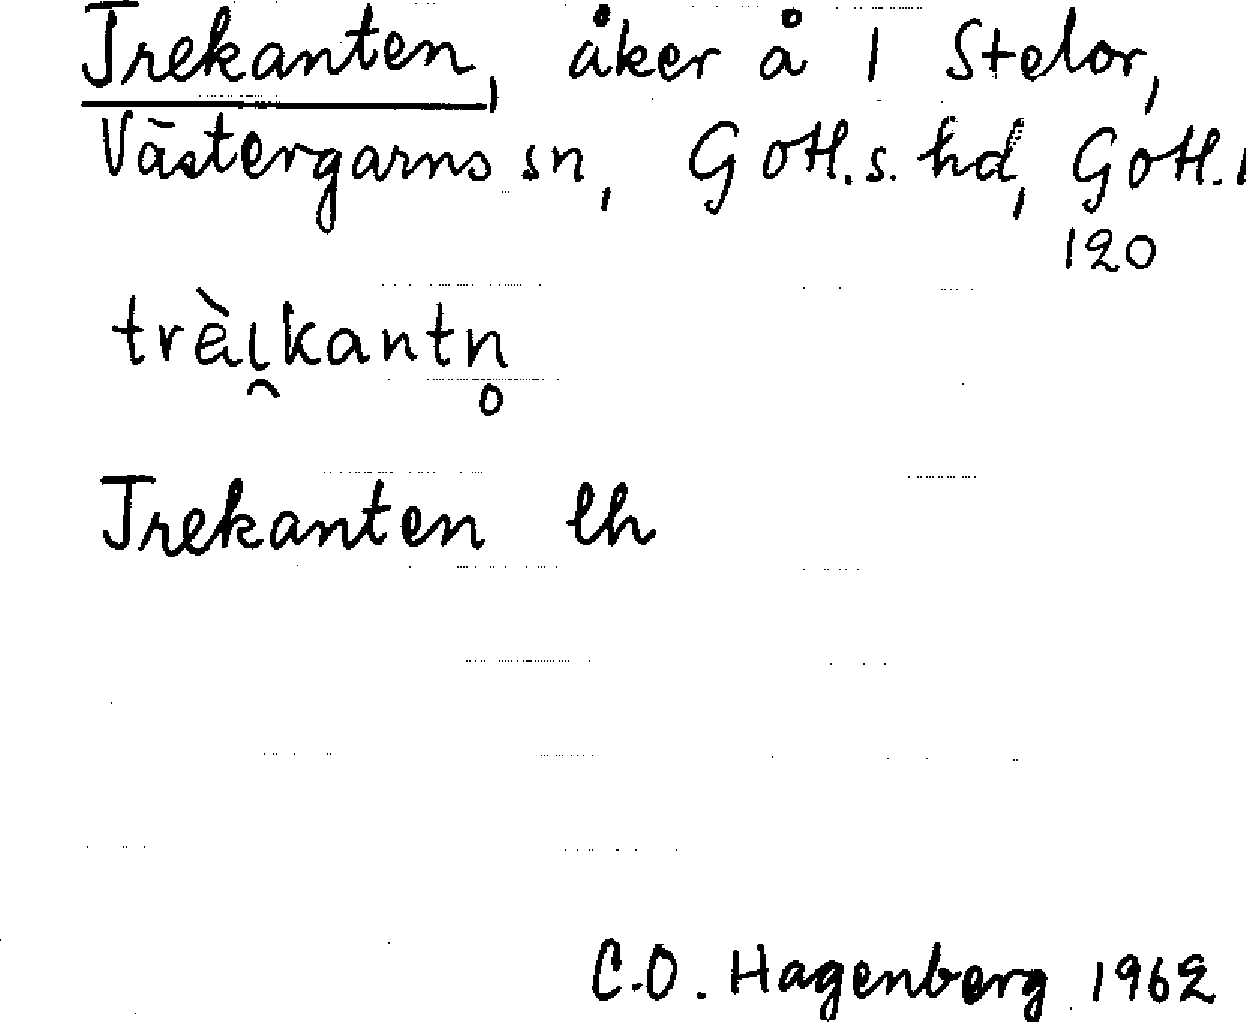 Trekanten, åker å 1 Stelor,
Västergarns sn, Gotl.s. hd, Gotl.
120
trèi̯kantn̥
Trekanten lh
C.O. Hagenberg 1962